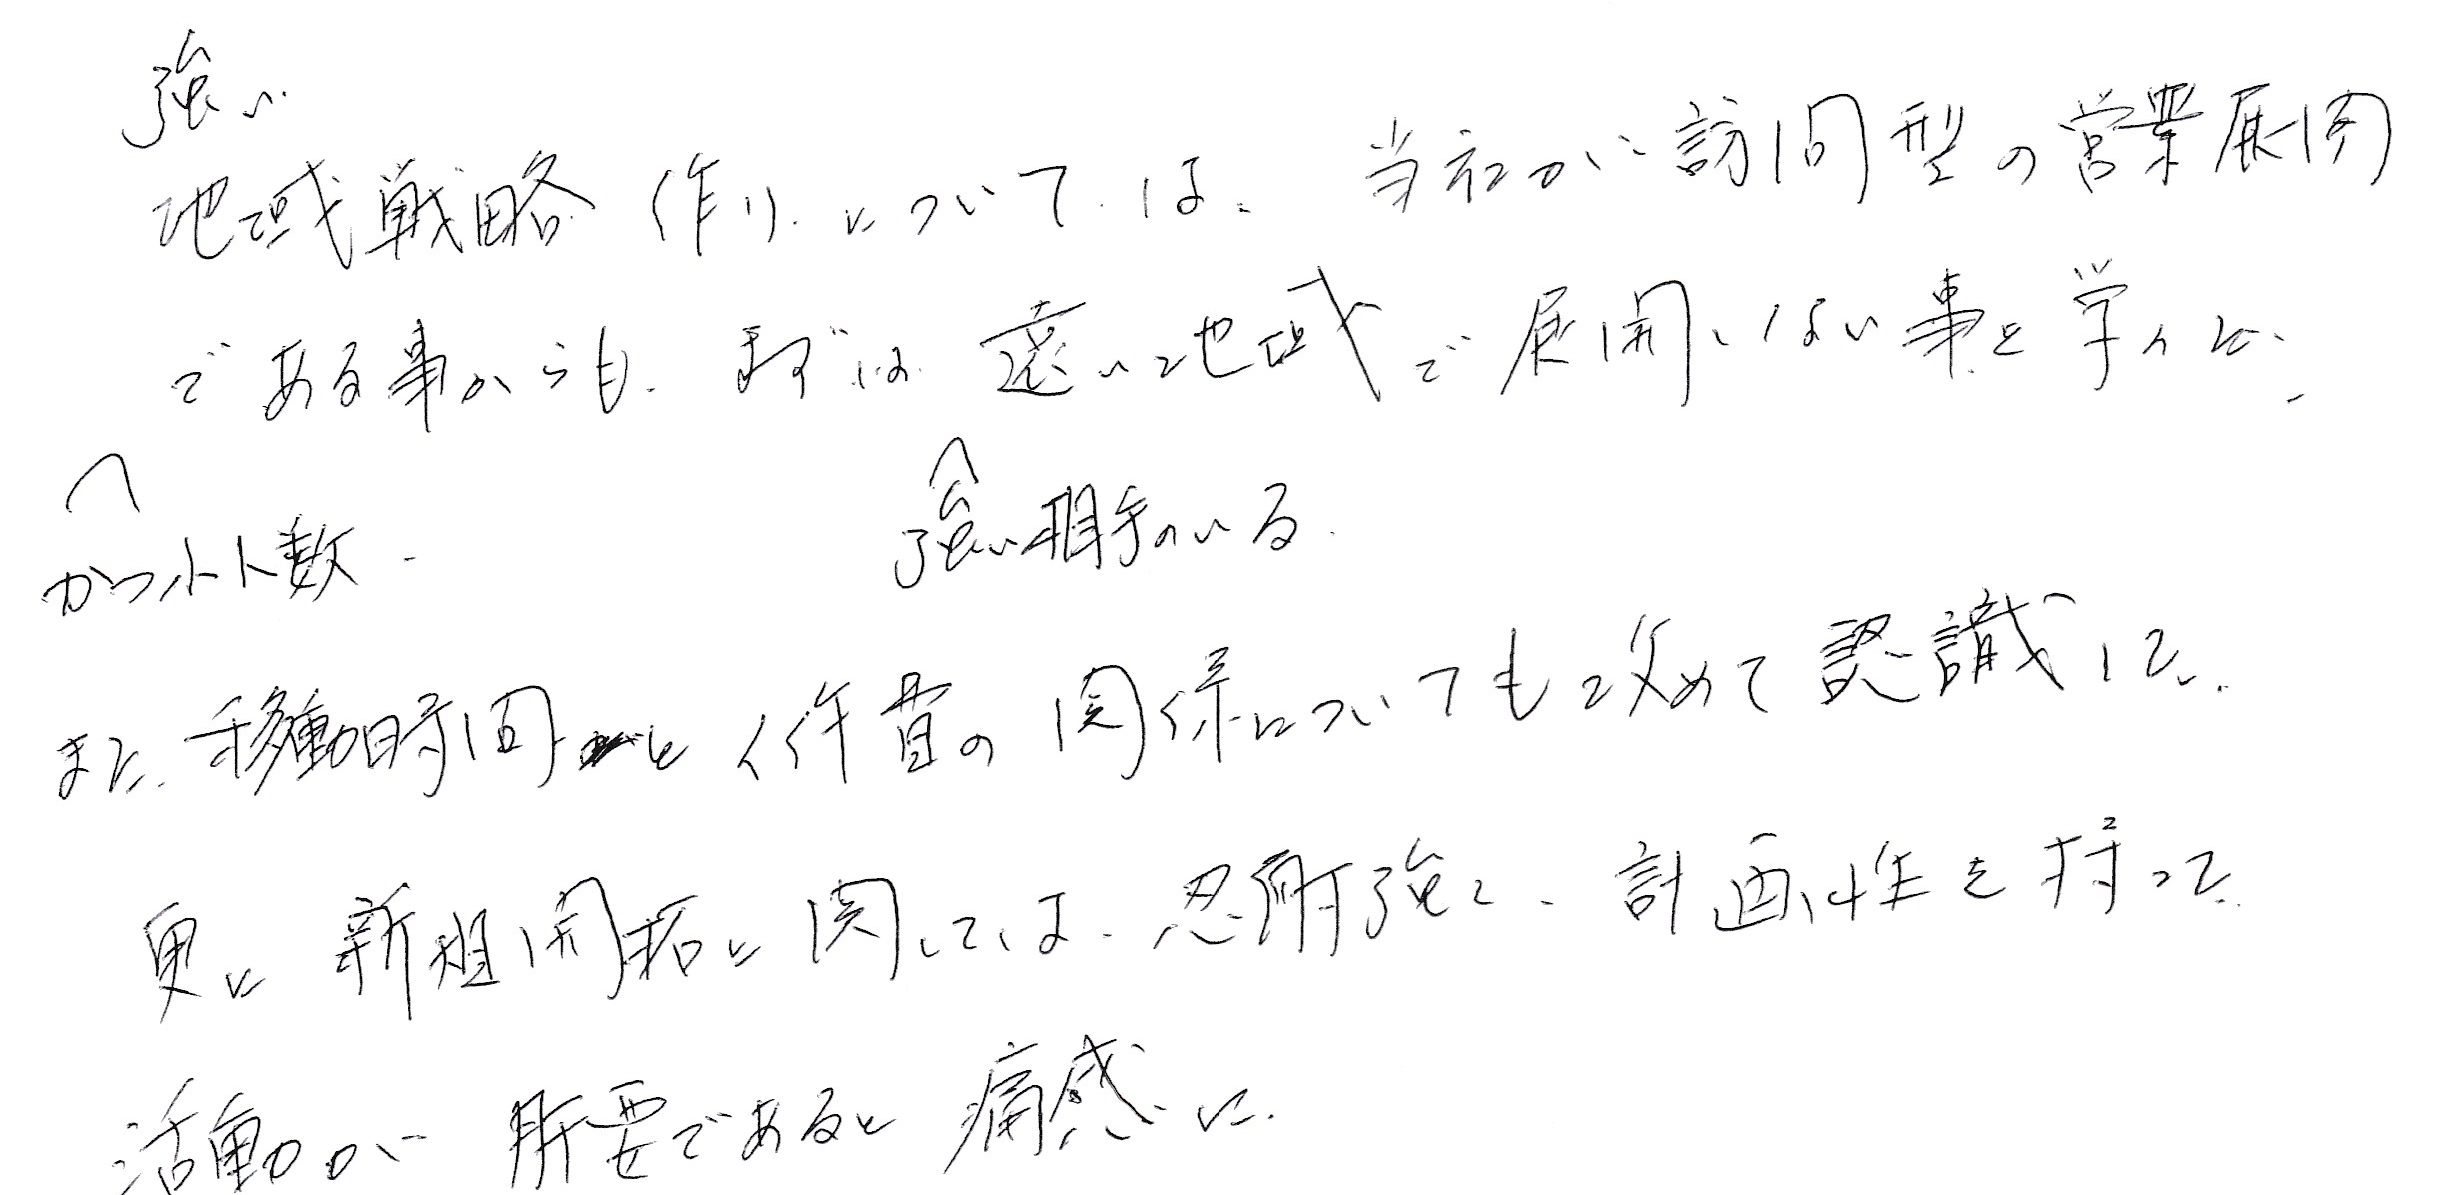 強い
地域戦略作りについては、当社が訪問型の営業展開
である事からも、まずは遠い地域で展開しない事を学んだ。
強い相手のいる
また、移動時間と人件費の関係についても改めて認識した。
更に新規開拓に関しては、忍耐強く、計画性を持った
活動が肝要であると痛感した。